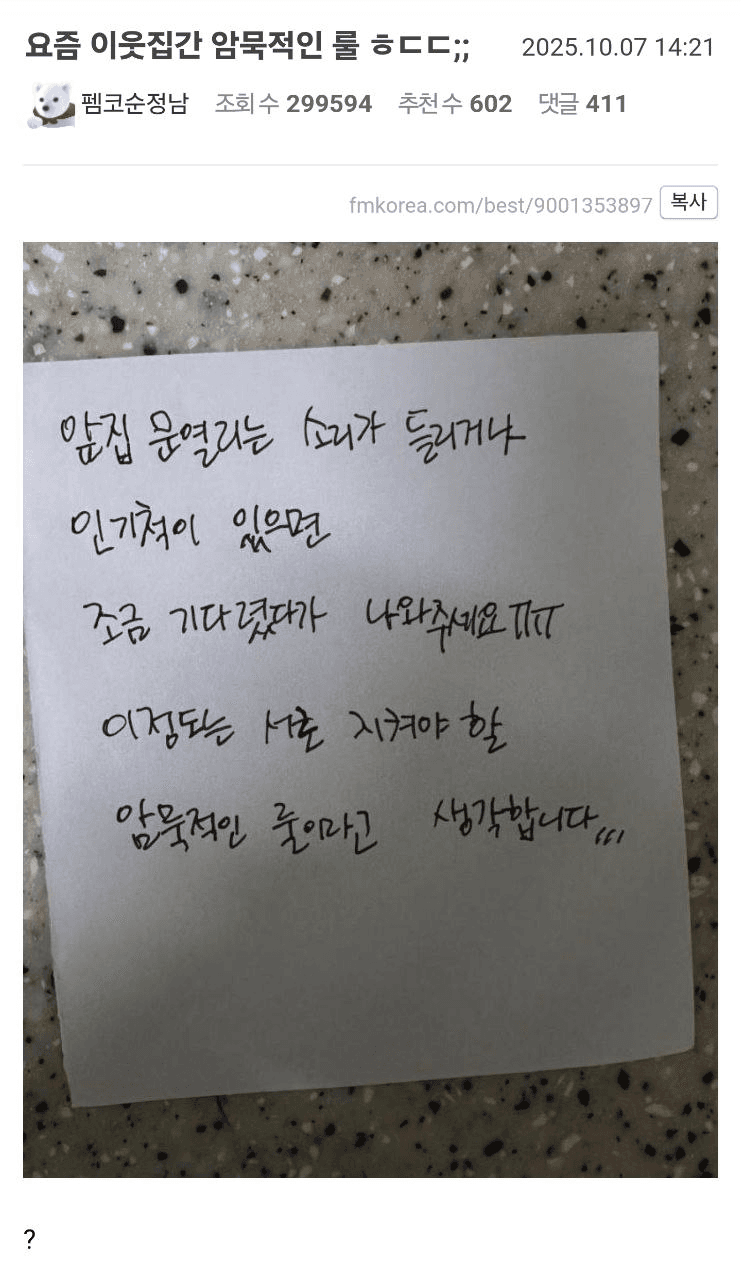 요즘 이웃집간 암묵적인 룰 ㅎㄷㄷ;; 2025.10.07 14:21
펨코순정남 조회 수 299594 추천 수 602 댓글 411
fmkorea.com/best/9001353897 복사
앞집 문열리는 소리가 들리거나
인기척이 있으면
조금 기다렸다가 나와주세요ㅠㅠ
이정도는 서로 지켜야 할
암묵적인 룰이라고 생각합니다,,,
?